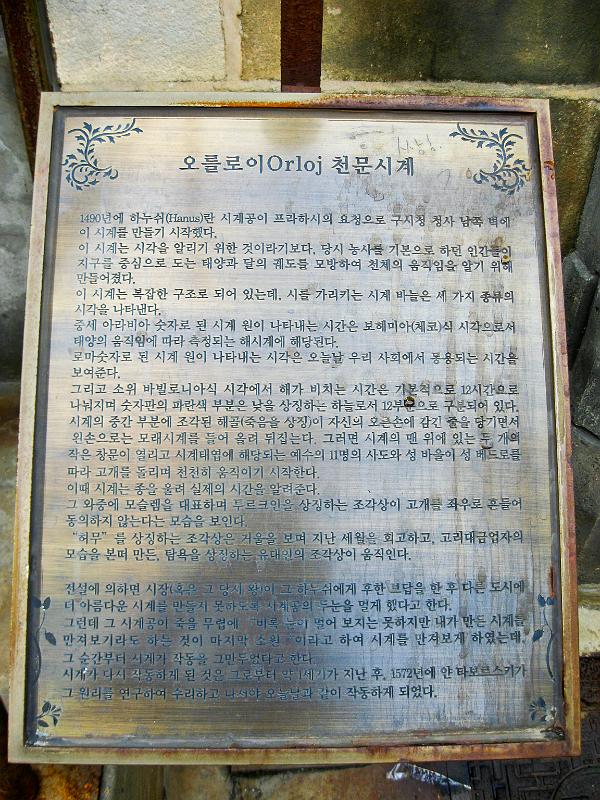 오를로이Orloj 천문시계
1490년에 하누쉬(Hanus)란 시계공이 프라하시의 요청으로 구시청 청사 남쪽 벽에
이 시계를 만들기 시작했다.
이 시계는 시각을 알리기 위한 것이라기보다, 당시 농사를 기본으로 하던 인간들이
지구를 중심으로 도는 태양과 달의 궤도를 모방하여 천체의 움직임을 알기 위해
만들어졌다.
이 시계는 복잡한 구조로 되어 있는데, 시를 가리키는 시계 바늘은 세 가지 종류의
시각을 나타낸다.
중세 아라비아 숫자로 된 시계 원이 나타내는 시간은 보헤미아(체코)식 시각으로서
태양의 움직임에 따라 측정되는 해시계에 해당된다.
로마숫자로 된 시계 원이 나타내는 시각은 오늘날 우리 사회에서 통용되는 시간을
보여준다.
그리고 소위 바빌로니아식 시각에서 해가 비치는 시간은 기본적으로 12시간으로
나눠지며 숫자판의 파란색 부분은 낮을 상징하는 하늘로서 12부분으로 구분되어 있다.
시계의 중간 부분에 조각된 해골(죽음을 상징)이 자신의 오른손에 감긴 줄을 당기면서
왼손으로는 모래시계를 들어 올려 뒤집는다. 그러면 시계의 맨 위에 있는 두 개의
작은 창문이 열리고 시계태엽에 해당되는 예수의 11명의 사도와 성 바울이 성 베드로를
따라 고개를 돌리며 천천히 움직이기 시작한다.
이때 시계는 종을 울려 실제의 시간을 알려준다.
그 와중에 모슬렘을 대표하며 투르크인을 상징하는 조각상이 고개를 좌우로 흔들어
동의하지 않는다는 모습을 보인다.
“허무” 를 상징하는 조각상은 거울을 보며 지난 세월을 회고하고, 고리대금업자의
모습을 본떠 만든, 탐욕을 상징하는 유대인의 조각상이 움직인다.
전설에 의하면 시장(혹은 그 당시 왕)이 그 하누쉬에게 후한 보답을 한 후 다른 도시에
더 아름다운 시계를 만들지 못하도록 시계공의 두눈을 멀게 했다고 한다.
그런데 그 시계공이 죽을 무렵에 “비록 눈이 멀어 보지는 못하지만 내가 만든 시계를
만져보기라도 하는 것이 마지막 소원” 이라고 하여 시계를 만져보게 하였는데,
그 순간부터 시계가 작동을 그만두었다고 한다.
시계가 다시 작동하게 된 것은 그로부터 약 1세기가 지난 후, 1572년에 얀 타보르스키가
그 원리를 연구하여 수리하고 나서야 오늘날과 같이 작동하게 되었다.